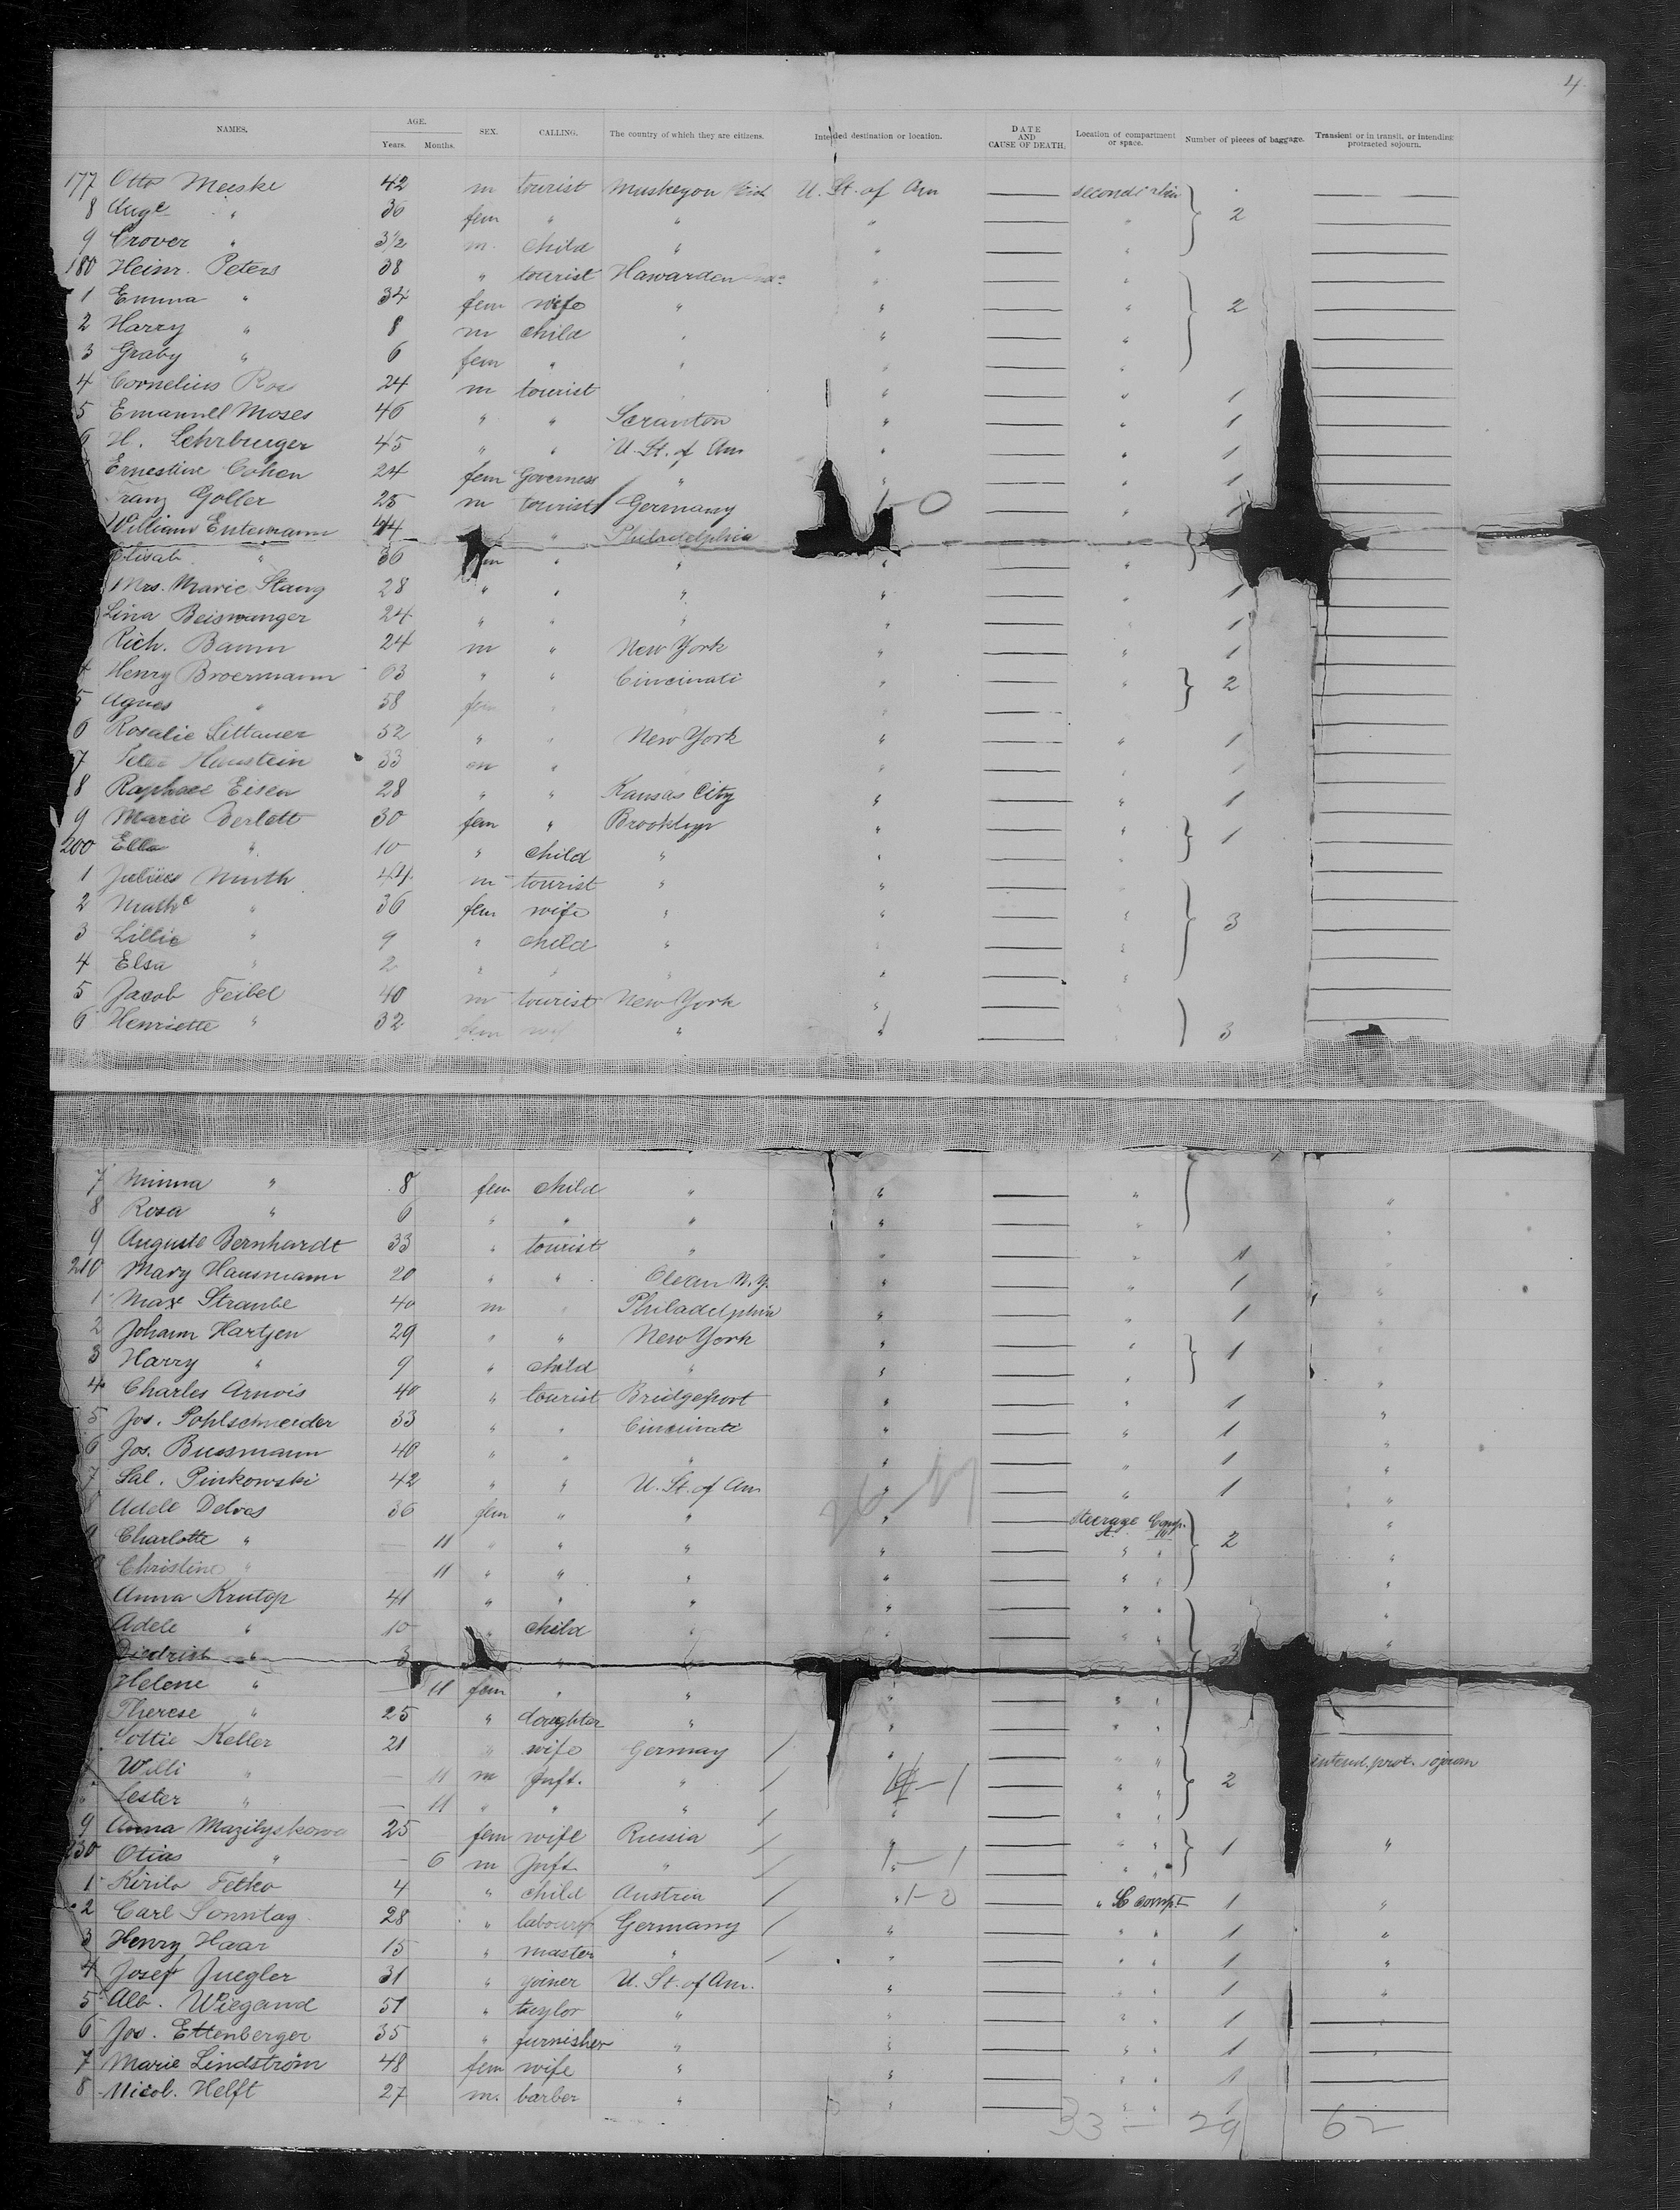 4.
NAMES. AGE. Years. Months. SEX. CALLING. The country of which they are citizens. Intended destination or location. DATE AND CAUSE OF DEATH. Location of compartment or space. Number of pieces of baggage. Transient or in transit, or intending protracted sojourn.
177 Otto Meiske 42 m tourist Muskegon U. St. of Am
8 Auge " 36 fem " " " " 2
9 Crover " 3½ m. child " " "
180 Heinr. Peters 38 " tourist Hawarden " "
1 Emma " 34 fem wife " " " 2
2 Harry " 8 m child " " "
3 Graby " 6 fem " " " "
4 Cornelius Ross 24 m tourist " " 1
5 Emanuel Moses 46 " " Scranton " " 1
6 H. Lehrburger 45 " " U. St. of Am " " 1
Ernestine Cohen 24 fem Governess " " " 1
Franz Goller 25 m tourist Germany 1-0 " 1
William Entemann 44 " Philadelphia
Elisab. " 36 fem " " " "
Mrs. Marie Stang 28 " " " " " 1
Lina Beiswanger 24 " " " " " 1
Rich. Baum 24 m " New York " " 1
4 Henry Broermann 63 " " Cincinati " " 2
5 Agnes " 58 fem " " "
6 Rosalie Littauer 52 " " New York " " 1
7 Peter Haustein 33 m " " " " 1
8 Raphael Eisen 28 " " Kansas City " " 1
9 Marie Berlett 30 fem " Brooklyn " " 1
200 Ella " 10 " child " " "
1 Julius Muth 44 m tourist " " "
2 Mathe " 36 fem wife " " " 3
3 Lillie " 9 " child " " "
4 Elsa " 2 " " " " "
5 Jacob Feibel 40 m tourist New York " "
6 Henriette " 32 fem " " 3
7 Minna " 8 fem child " " " "
8 Rosa " 6 " " " " " "
9 Auguste Bernhardt 33 " tourist " " " 1 "
210 Mary Hausmann 20 " " Olean N.Y. " " 1 "
1 Max Straube 40 m " Philadelphia " " 1 "
2 Johann Hartjen 29 " " New York " " 1 "
3 Harry " 9 " child " " "
4 Charles Arnois 40 " tourist Bridgeport " " 1 "
5 Jos. Pohlschneider 33 " " Cincinati " " 1 "
6 Jos. Bussmann 40 " " " " " 1 "
7 Sal. Pinkowski 42 " " U. St. of Am " " 1 "
8 Adele Delves 36 fem " " " Steerage Comp. "
9 Charlotte " 11 " " " " " " 2 "
Christine " 11 " " " " " " "
Anna Krutop 41 " " " " " " "
Adele " 10 " child " " " " 3 "
Diedrich " 3 " "
Helene " 11 fem " " " " "
Therese " 25 " daughter " " " "
Lottie Keller 21 " wife Germay / " " " intend. prot. sojourn
Willi " 11 m Inft. " / " " 2
Lester " 11 " " " / " " "
9 Anna Mazilyskowa 25 fem wife Russia / " " " 1 "
230 Otias " 6 m Inft. " / 1-1 " "
1 Kirilo Fetko 4 " child Austria / 1-0 " compt 1 "
2 Carl Sonntag 28 " labourer Germany / " " " 1 "
3 Henry Haar 15 " master " / " " " 1 "
4 Josef Juegler 31 " joiner U. St. of Am. " " " 1 "
5 Alb. Wiegand 51 " taylor " " " " 1
6 Jos. Ettenberger 35 " furnisher " " " " 1
7 Marie Lindström 48 fem wife " " " " 1
8 Nicol. Helft 27 m. barber " " " " 1
33 - 29 62